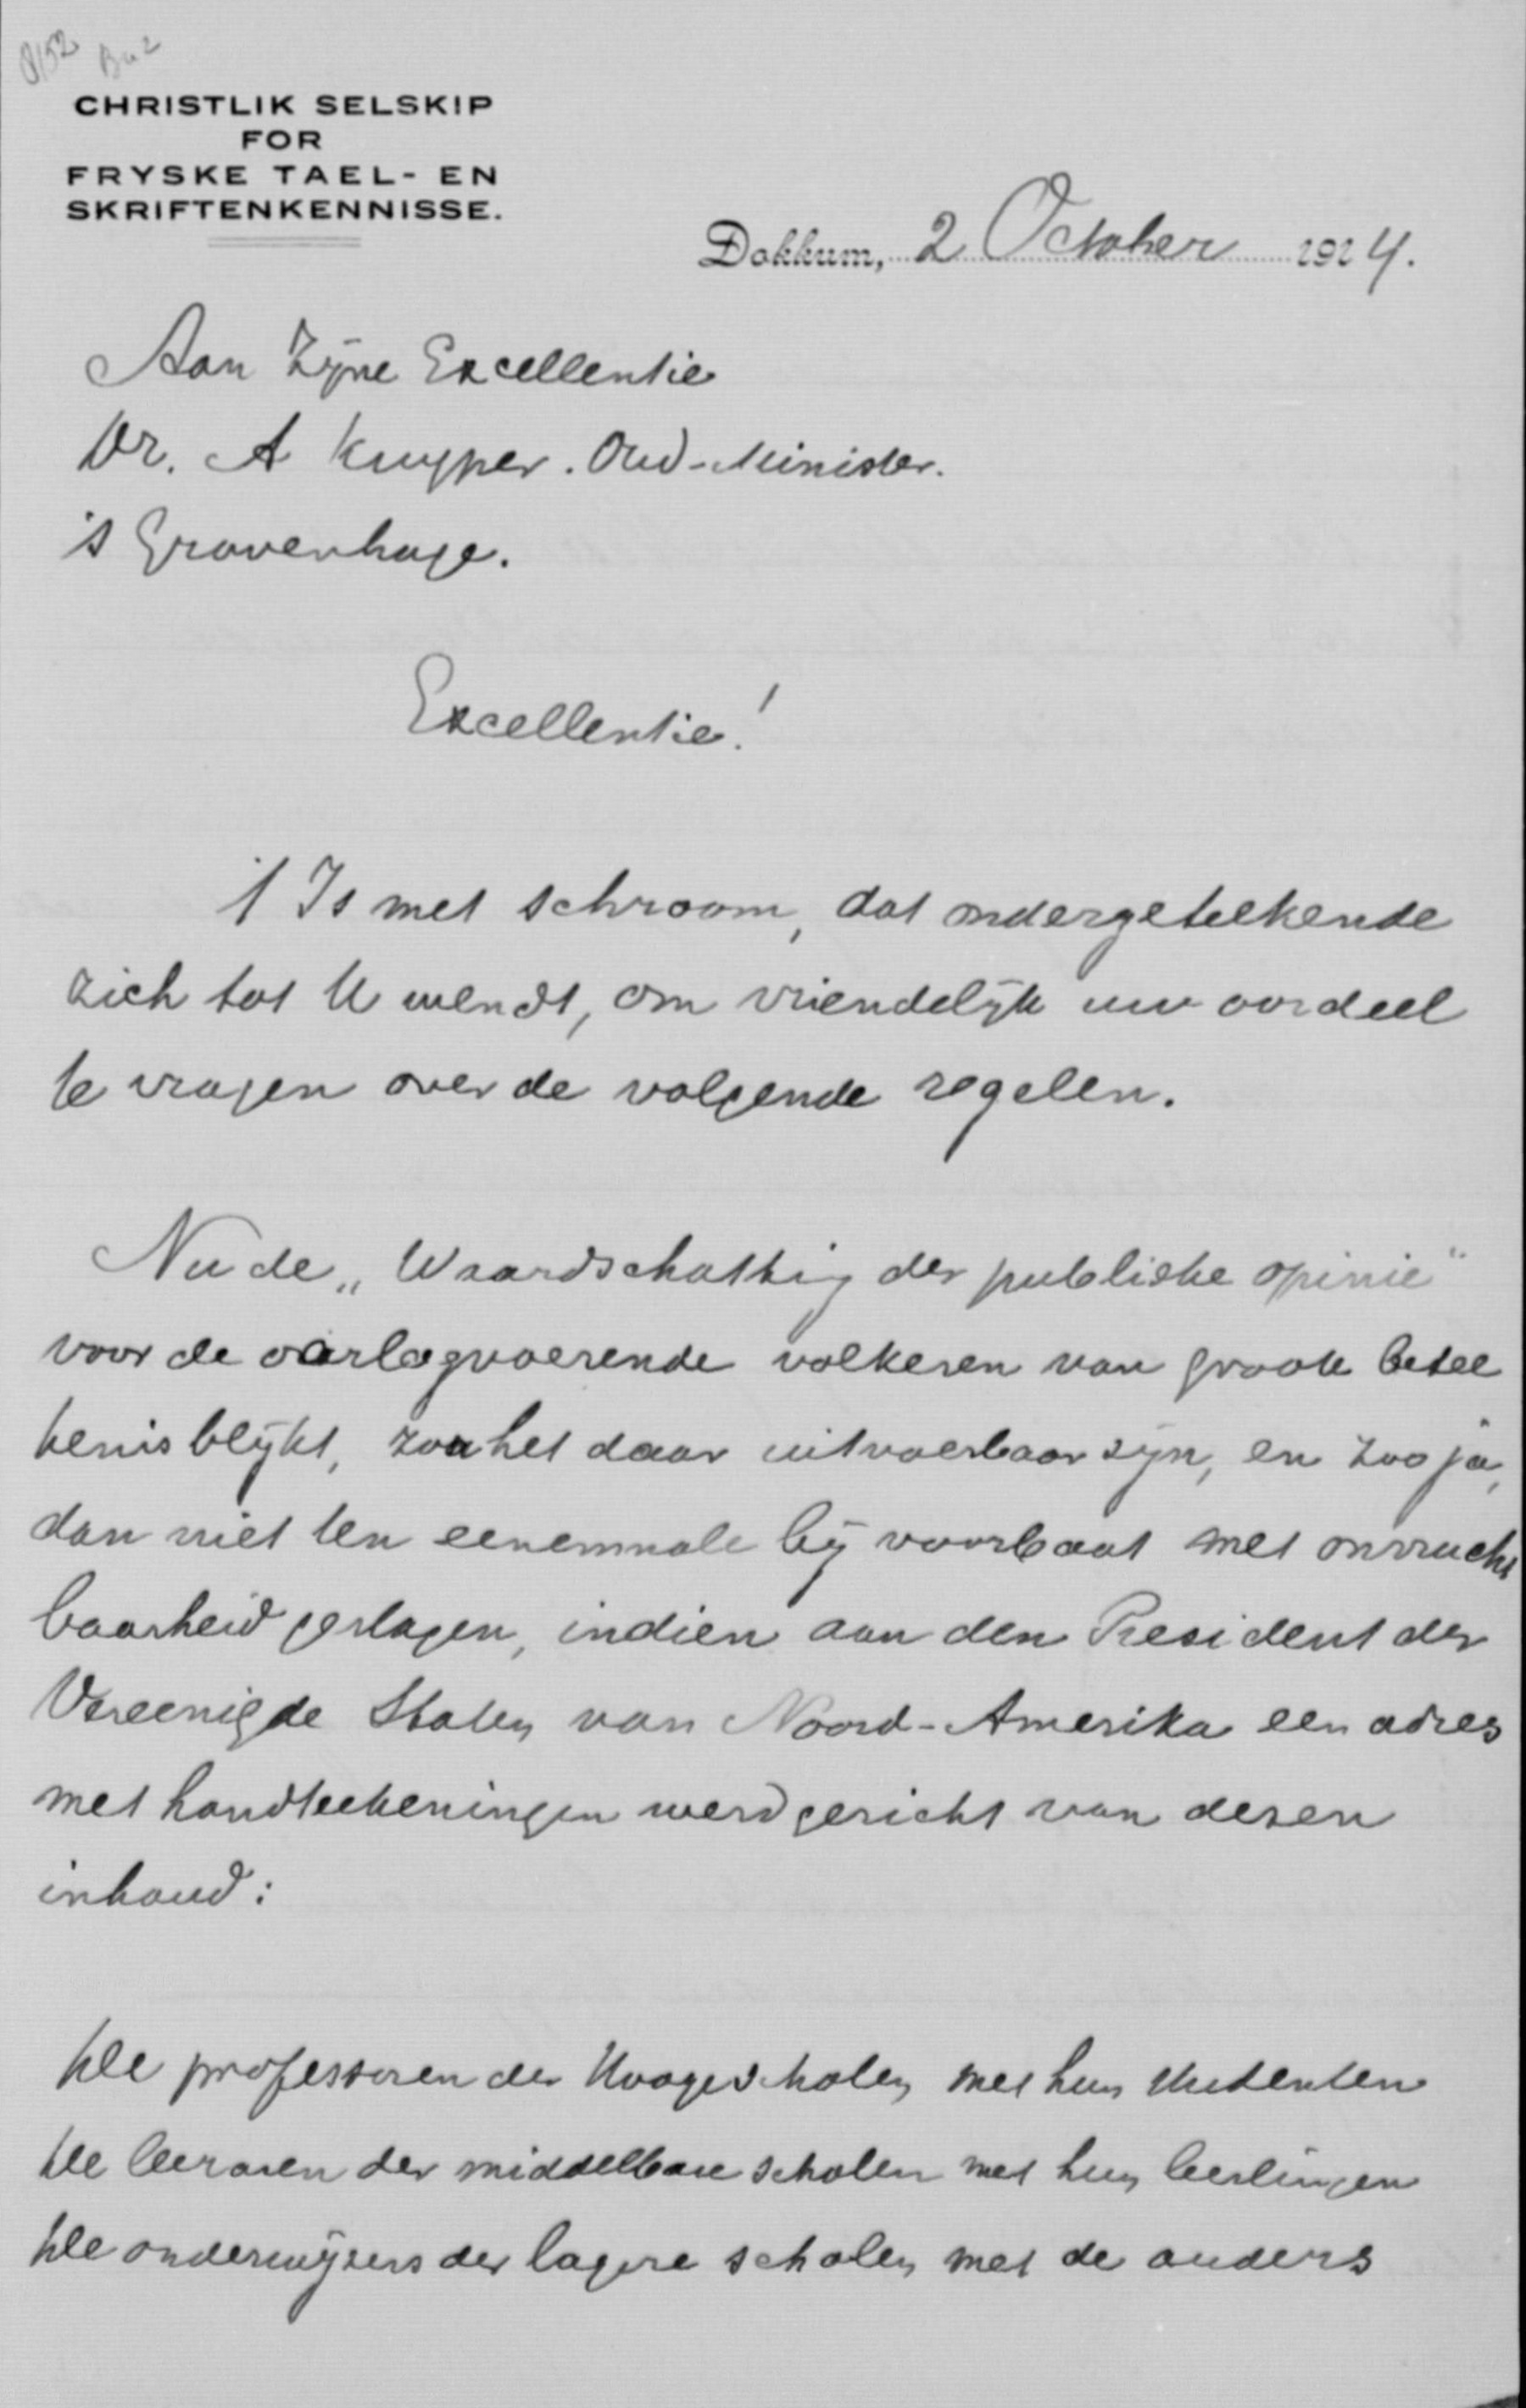 8152 Bu 2
CHRISTLIK SELSKIP
FOR
FRYSKE TAEL- EN
SKRIFTENKENNISSE.
Dokkum, 2 October 1914.
Aan Zijne Excellentie
Dr. A Kuyper. Oud-Minister.
's Gravenhage.
Excellentie!
't Is met schroom, dat ondergeteekende
zich tot U wendt, om vriendelijk uw oordeel
te vragen over de volgende regelen.
Nu de „Waardschatting der publieke opinie"
voor de oorlogvoerende volkeren van groote betee
kenis blijkt, zou het daar uitvoerbaar zijn, en zoo ja,
dan niet ten eenenmale bij voorbaat met onvrucht
baarheid geslagen, indien aan den President der
Vereenigde Staten van Noord-Amerika een adres
met handteekeningen werd gericht van dezen
inhoud:
De professoren der Hoogescholen met hun studenten
De leeraren der middelbare scholen met hun leerlingen
De onderwijzers der lagere scholen met de ouders